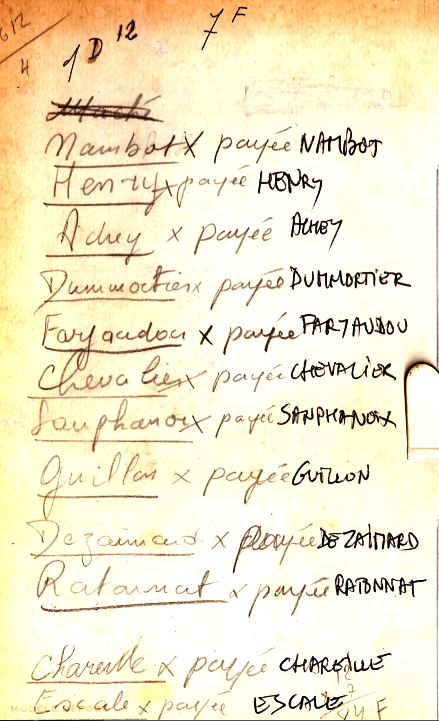 612
4
1D 12
7F
Nambot x payée NAMBOT
Henry x payée HENRY
Achey x payée ACHEY
Dummortier x payée DUMMORTIER
Farjaudou x payée FARJAUDOU
Chevalier x payée CHEVALIER
Sanphanoix x payée SANPHANOIX
Guillon x payée GUILLON
x payée DEZAIMARD
Ratonnat x payée RATONNAT
Chareille x payée CHAREILLE
Escale x payée ESCALE
12
7
84 F